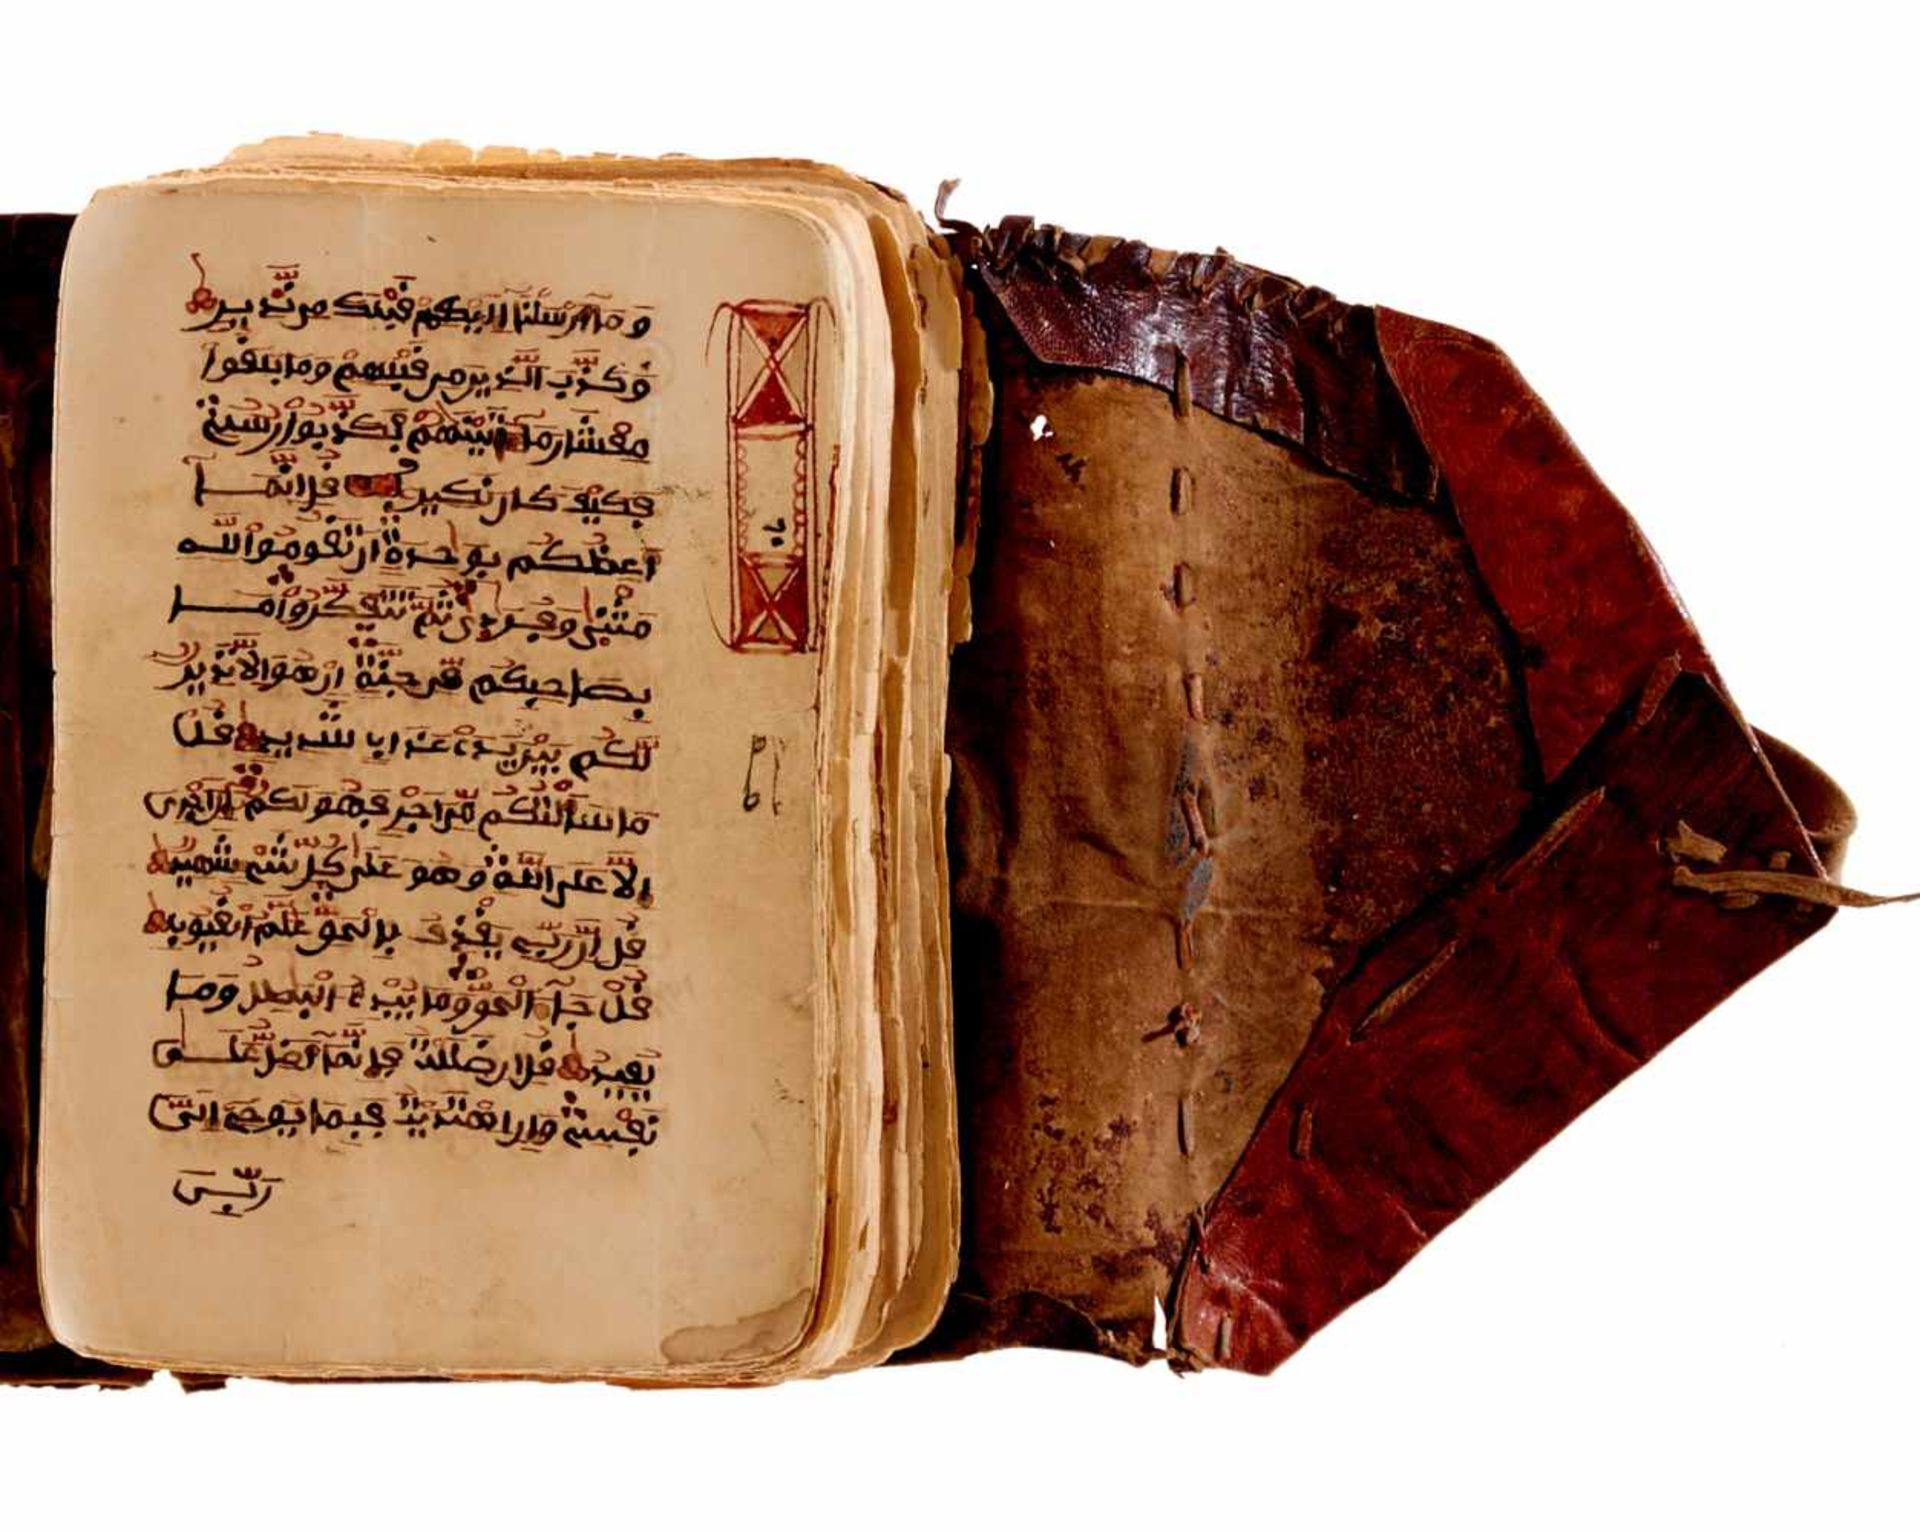 وما أرسلنا إليهم قبلك من نذير
وكذب الذين من قبلهم وما بلغوا
معشار ما ءاتينهم فكذبوا رسلي
فكيف كان نكير قل إنما
أعظكم بواحدة أن تقوموا لله
مثنى وفردى ثم تتفكروا ما
بصاحبكم من جنة إن هو إلا نذير
لكم بين يدي عذاب شديد قل
ما سألتكم من أجر فهو لكم إن أجري
إلا على الله وهو على كل شيء شهيد
قل إن ربي يقذف بالحق علم الغيوب
قل جاء الحق وما يبدئ البطل وما
يعيد قل إن ضللت فإنما أضل على
نفسي وإن اهتديت فبما يوحي إلي
ربي